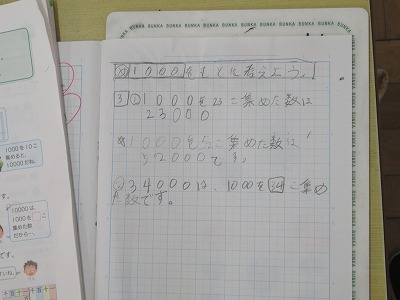 め 1000をもとに考えよう。
3 ① 1000を23こ集めた数は
23000
1000を52こ集めた数は
52000です。
② 34000は、1000を34こ集め
た数です。
1000を10こ
集めると、
10000だね。
10000は、
1000を□こ
集めた数
だから…。
BUNKA BUNKA BUNKA BUNKA BUNKA BUNKA BUNKA BUNKA BUNKA